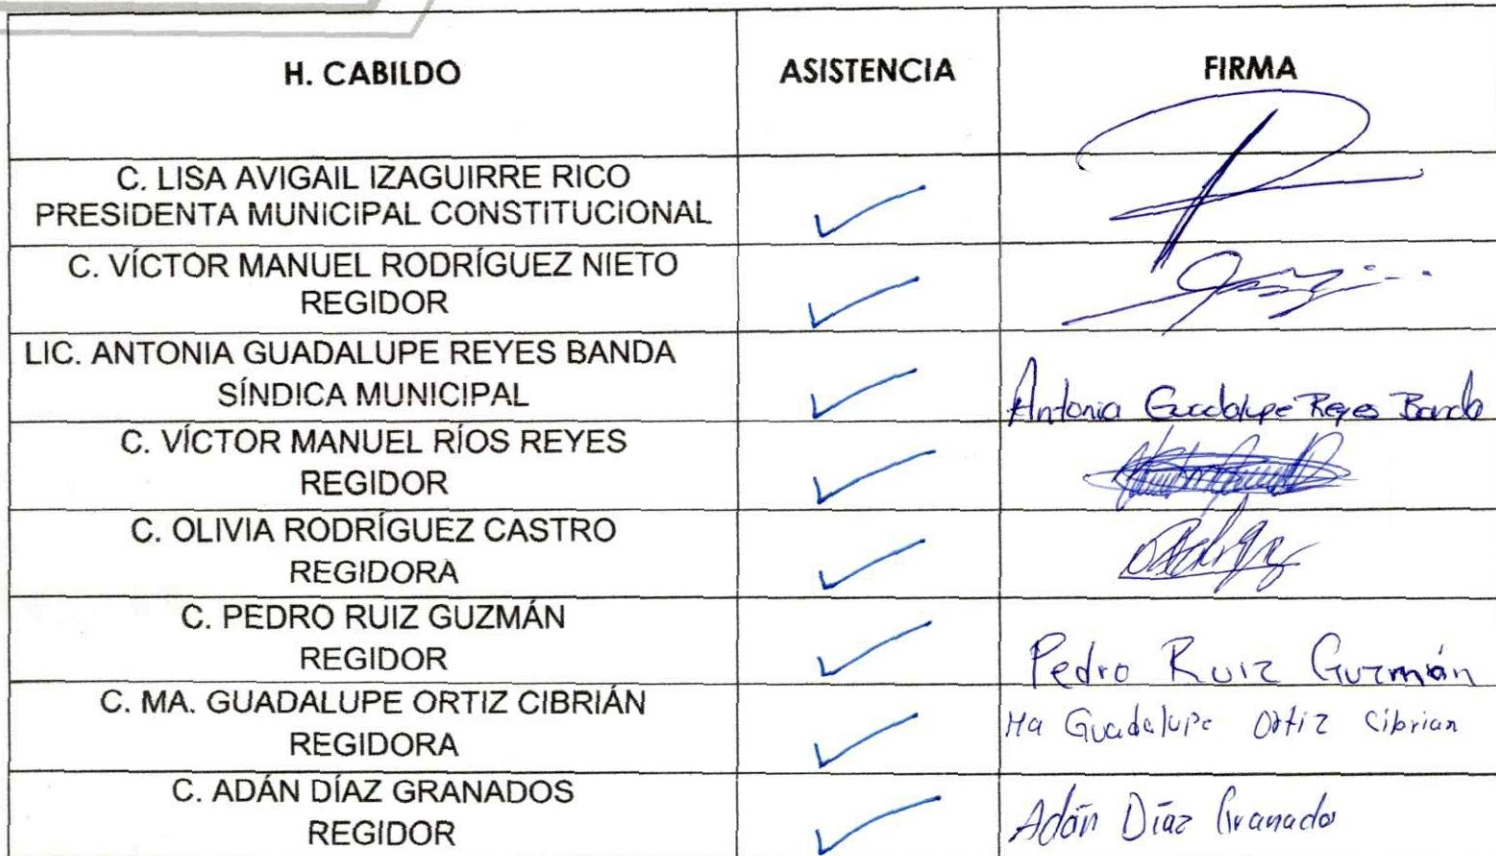 H. CABILDO
ASISTENCIA
FIRMA
C. LISA AVIGAIL IZAGUIRRE RICO
PRESIDENTA MUNICIPAL CONSTITUCIONAL
C. VÍCTOR MANUEL RODRÍGUEZ NIETO
REGIDOR
LIC. ANTONIA GUADALUPE REYES BANDA
SÍNDICA MUNICIPAL
Antonia Guadalupe Reyes Banda
C. VÍCTOR MANUEL RÍOS REYES
REGIDOR
C. OLIVIA RODRÍGUEZ CASTRO
REGIDORA
C. PEDRO RUIZ GUZMÁN
REGIDOR
Pedro Ruiz Guzmán
C. MA. GUADALUPE ORTIZ CIBRIÁN
REGIDORA
Ma Guadalupe Ortiz Cibrian
C. ADÁN DÍAZ GRANADOS
REGIDOR
Adán Díaz Granado